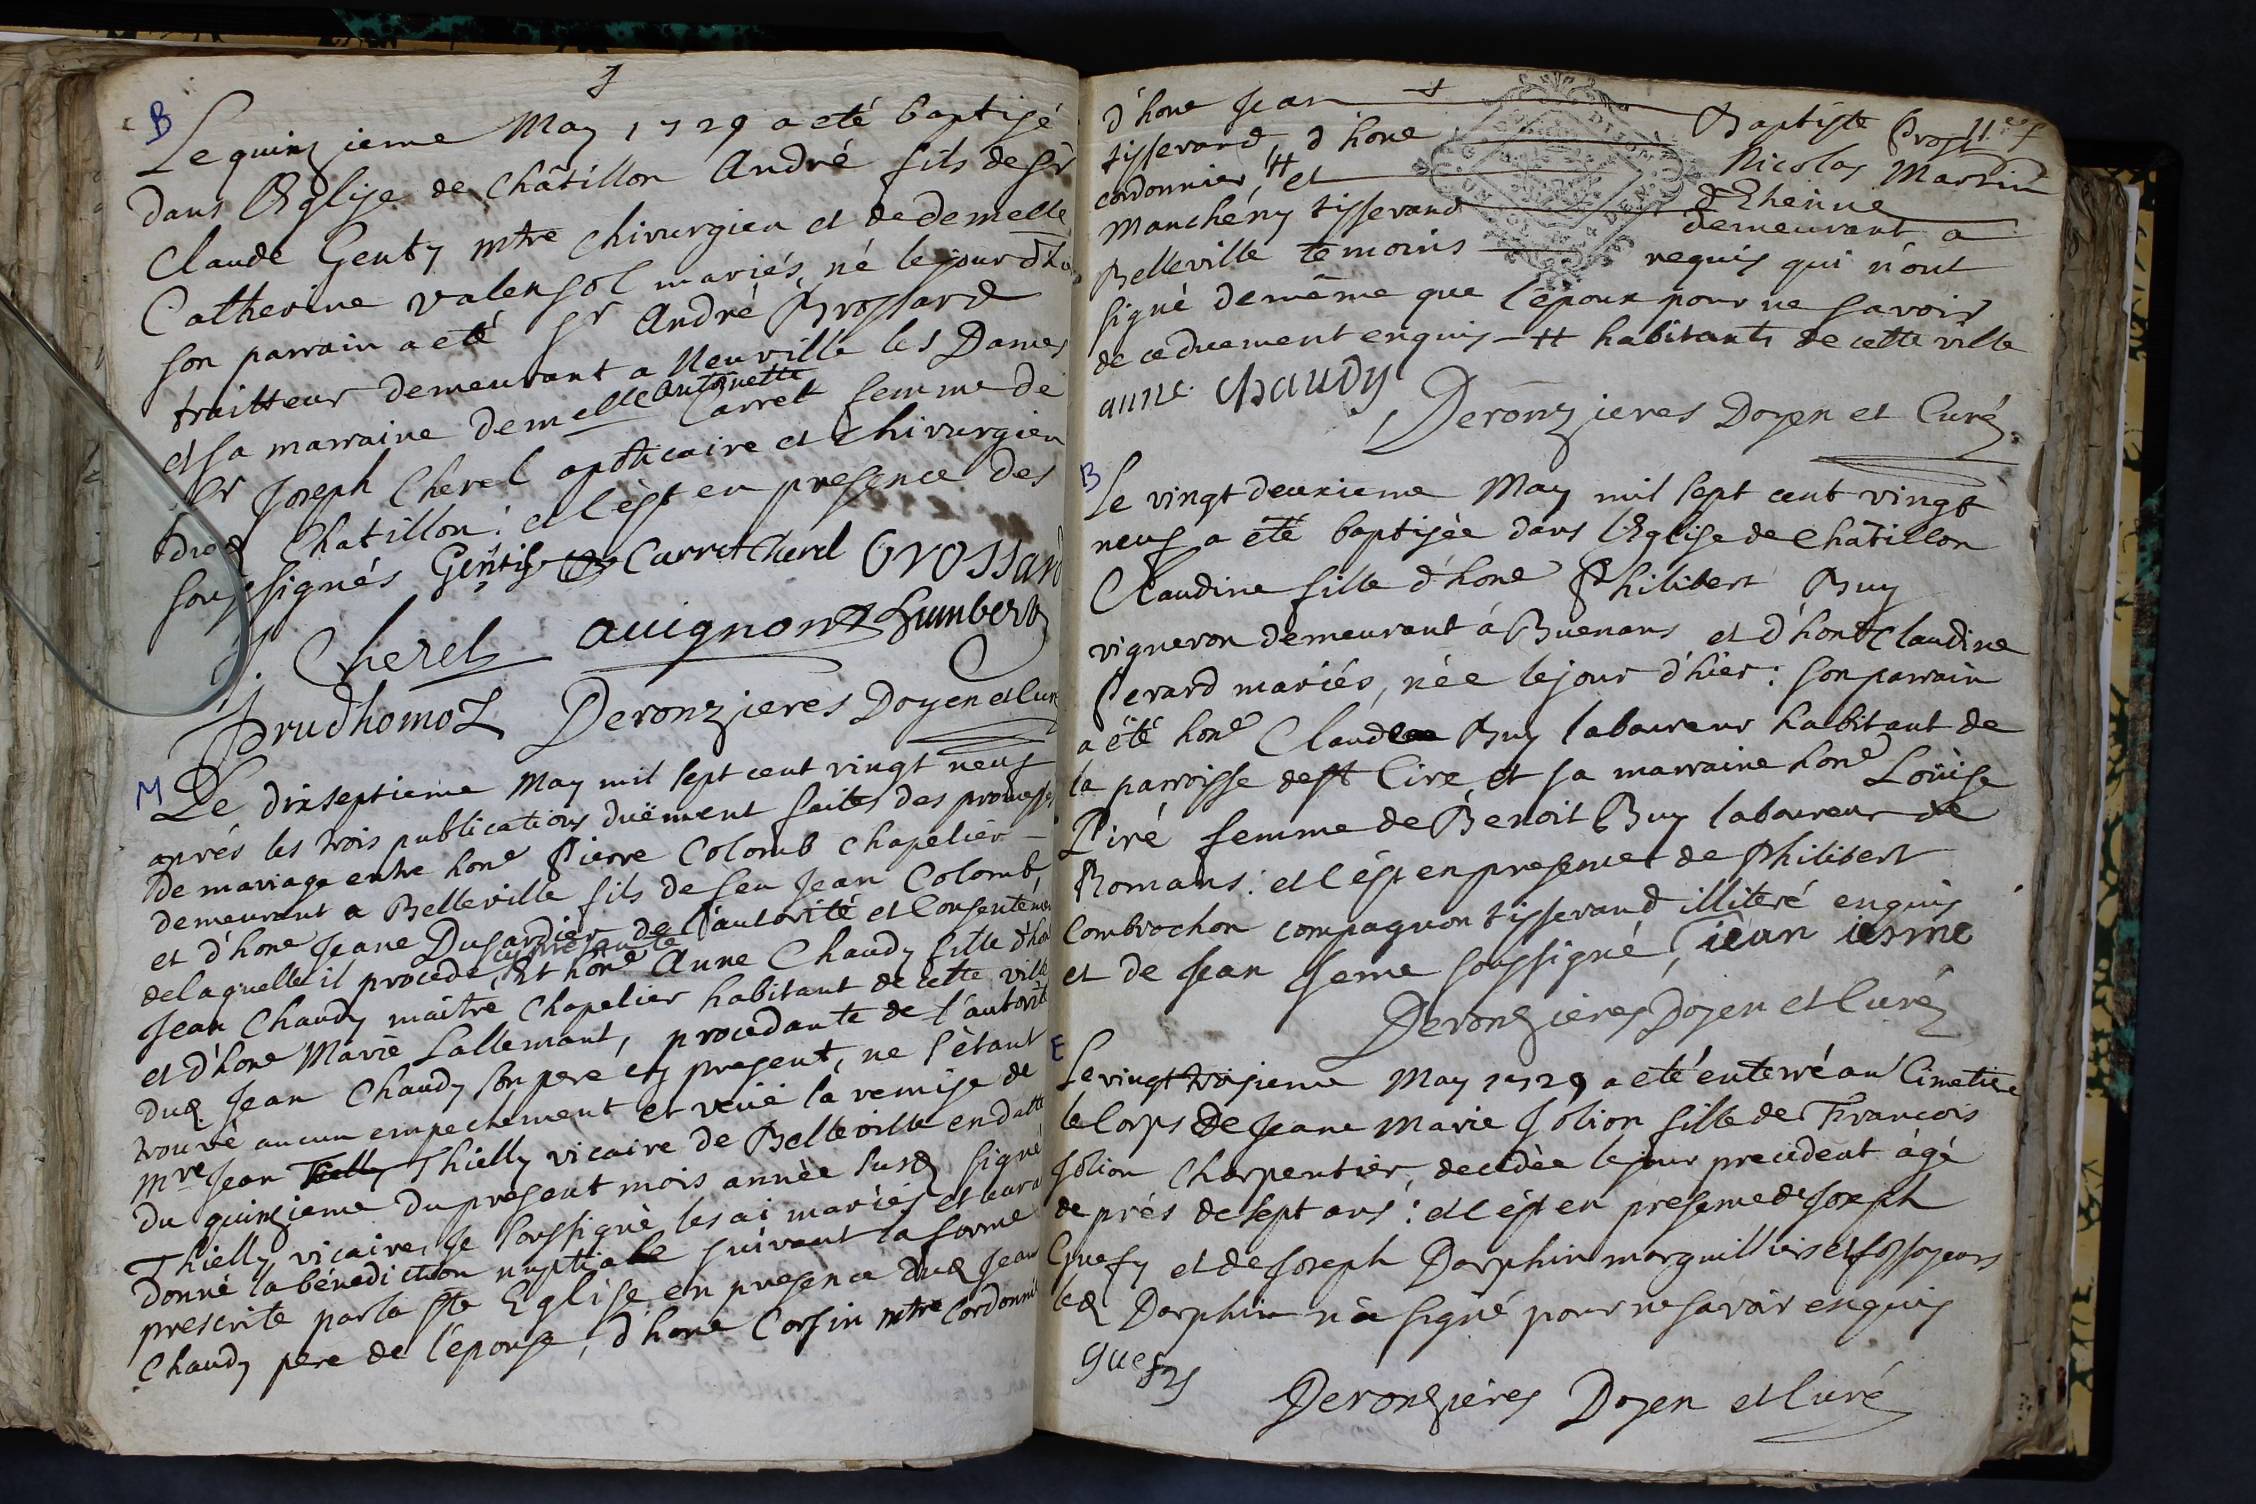 B
Le quinzieme May 1729 a eté baptisé
dans l'Eglise de Châtillon André fils de Sr
Claude Genty mtre chirurgien et de demelle
Catherine valensol mariés, né le jour d'h
son parrain a eté Sr André Brossard
traitteur demeurant a Neuville les Dames
et sa marraine demelle antoinette Carret femme de
Sr Joseph Cherel apoticaire et chirurgien
dud Chatillon: et c'est en presence des
soussignés Gentis Carret Cherel Brossard
J. Cherel avignon Humbert
Prudhomoz Deronzieres Doyen et Curé
M
Le dixseptieme May mil sept cent vingt neuf
aprés les trois publications duëment faites des promesses
de mariage entre hone Pierre Colomb chapelier
demeurant a Belleville fils de feu Jean Colomb
et d'hone Jeane Dusardier de l'autorité et Consentemen
de laquelle il procede, cy presente Et hone Anne Chaudy fille d'hone
Jean Chaudy maître Chapelier habitant de cette ville
et d'hone Marie Lallemant, procedante de l'autorité
dud Jean Chaudy son pere cy present, ne s'étant
trouvé aucun empechement et veüe la remise de
mre Jean Thielly vicaire de Belleville en datte
du quinzieme du present mois année susd signé
Thielly vicaire, Je soussigné les ai mariés et leur a
donné la bénediction nuptiale suivant la forme
prescrite par la Ste Eglise en presence dud Jean
Chaudy pere de l'épouse, d'hone Corsin mtre Cordonnie
d'hone Jean Baptiste Prost
tisserand, d'hone Nicolas Martin
cordonnier, # et d'Etienne
Manchény tisserand demeurant a
Belleville temoins requis qui n'ont
signé de même que l'époux pour ne savoir
de ce duement enquis # habitants de cette ville
anne Chaudy
Deronzieres Doyen et Curé
B
Le vingt deuxieme May mil sept cent vingt
neuf a été baptisée dans l'Eglise de Châtillon
Claudine fille d'hone Philibert Buy
vigneron demeurant á Buenans et d'hone Claudine
Perard mariés, née le jour d'hier: son parrain
a été hone Claude Buy laboureur habitant de
la parroisse de St Cire et sa marraine hone Loüise
Piré femme de Benoit Buy laboureur de
Romans: et c'est en presence de Philibert
Combrochon compagnon tisserand illiteré enquis
et de Jean Jeme soussigné, jean ieme
Deronzieres Doyen et Curé
E
Le vingt troisieme May 1729 a eté enterré au Cimetiere
le Corps de Jeane Marie Jolion fille de François
Jolion Charpentier, decedée le jour precedent ágé
de prés de sept ans: et c'est en presence de Joseph
Guefy et de Joseph Dorphin marguilliers et fossoyeurs
led Dorphin n'a signé pour ne savoir enquis
guefy
Deronzieres Doyen et Curé